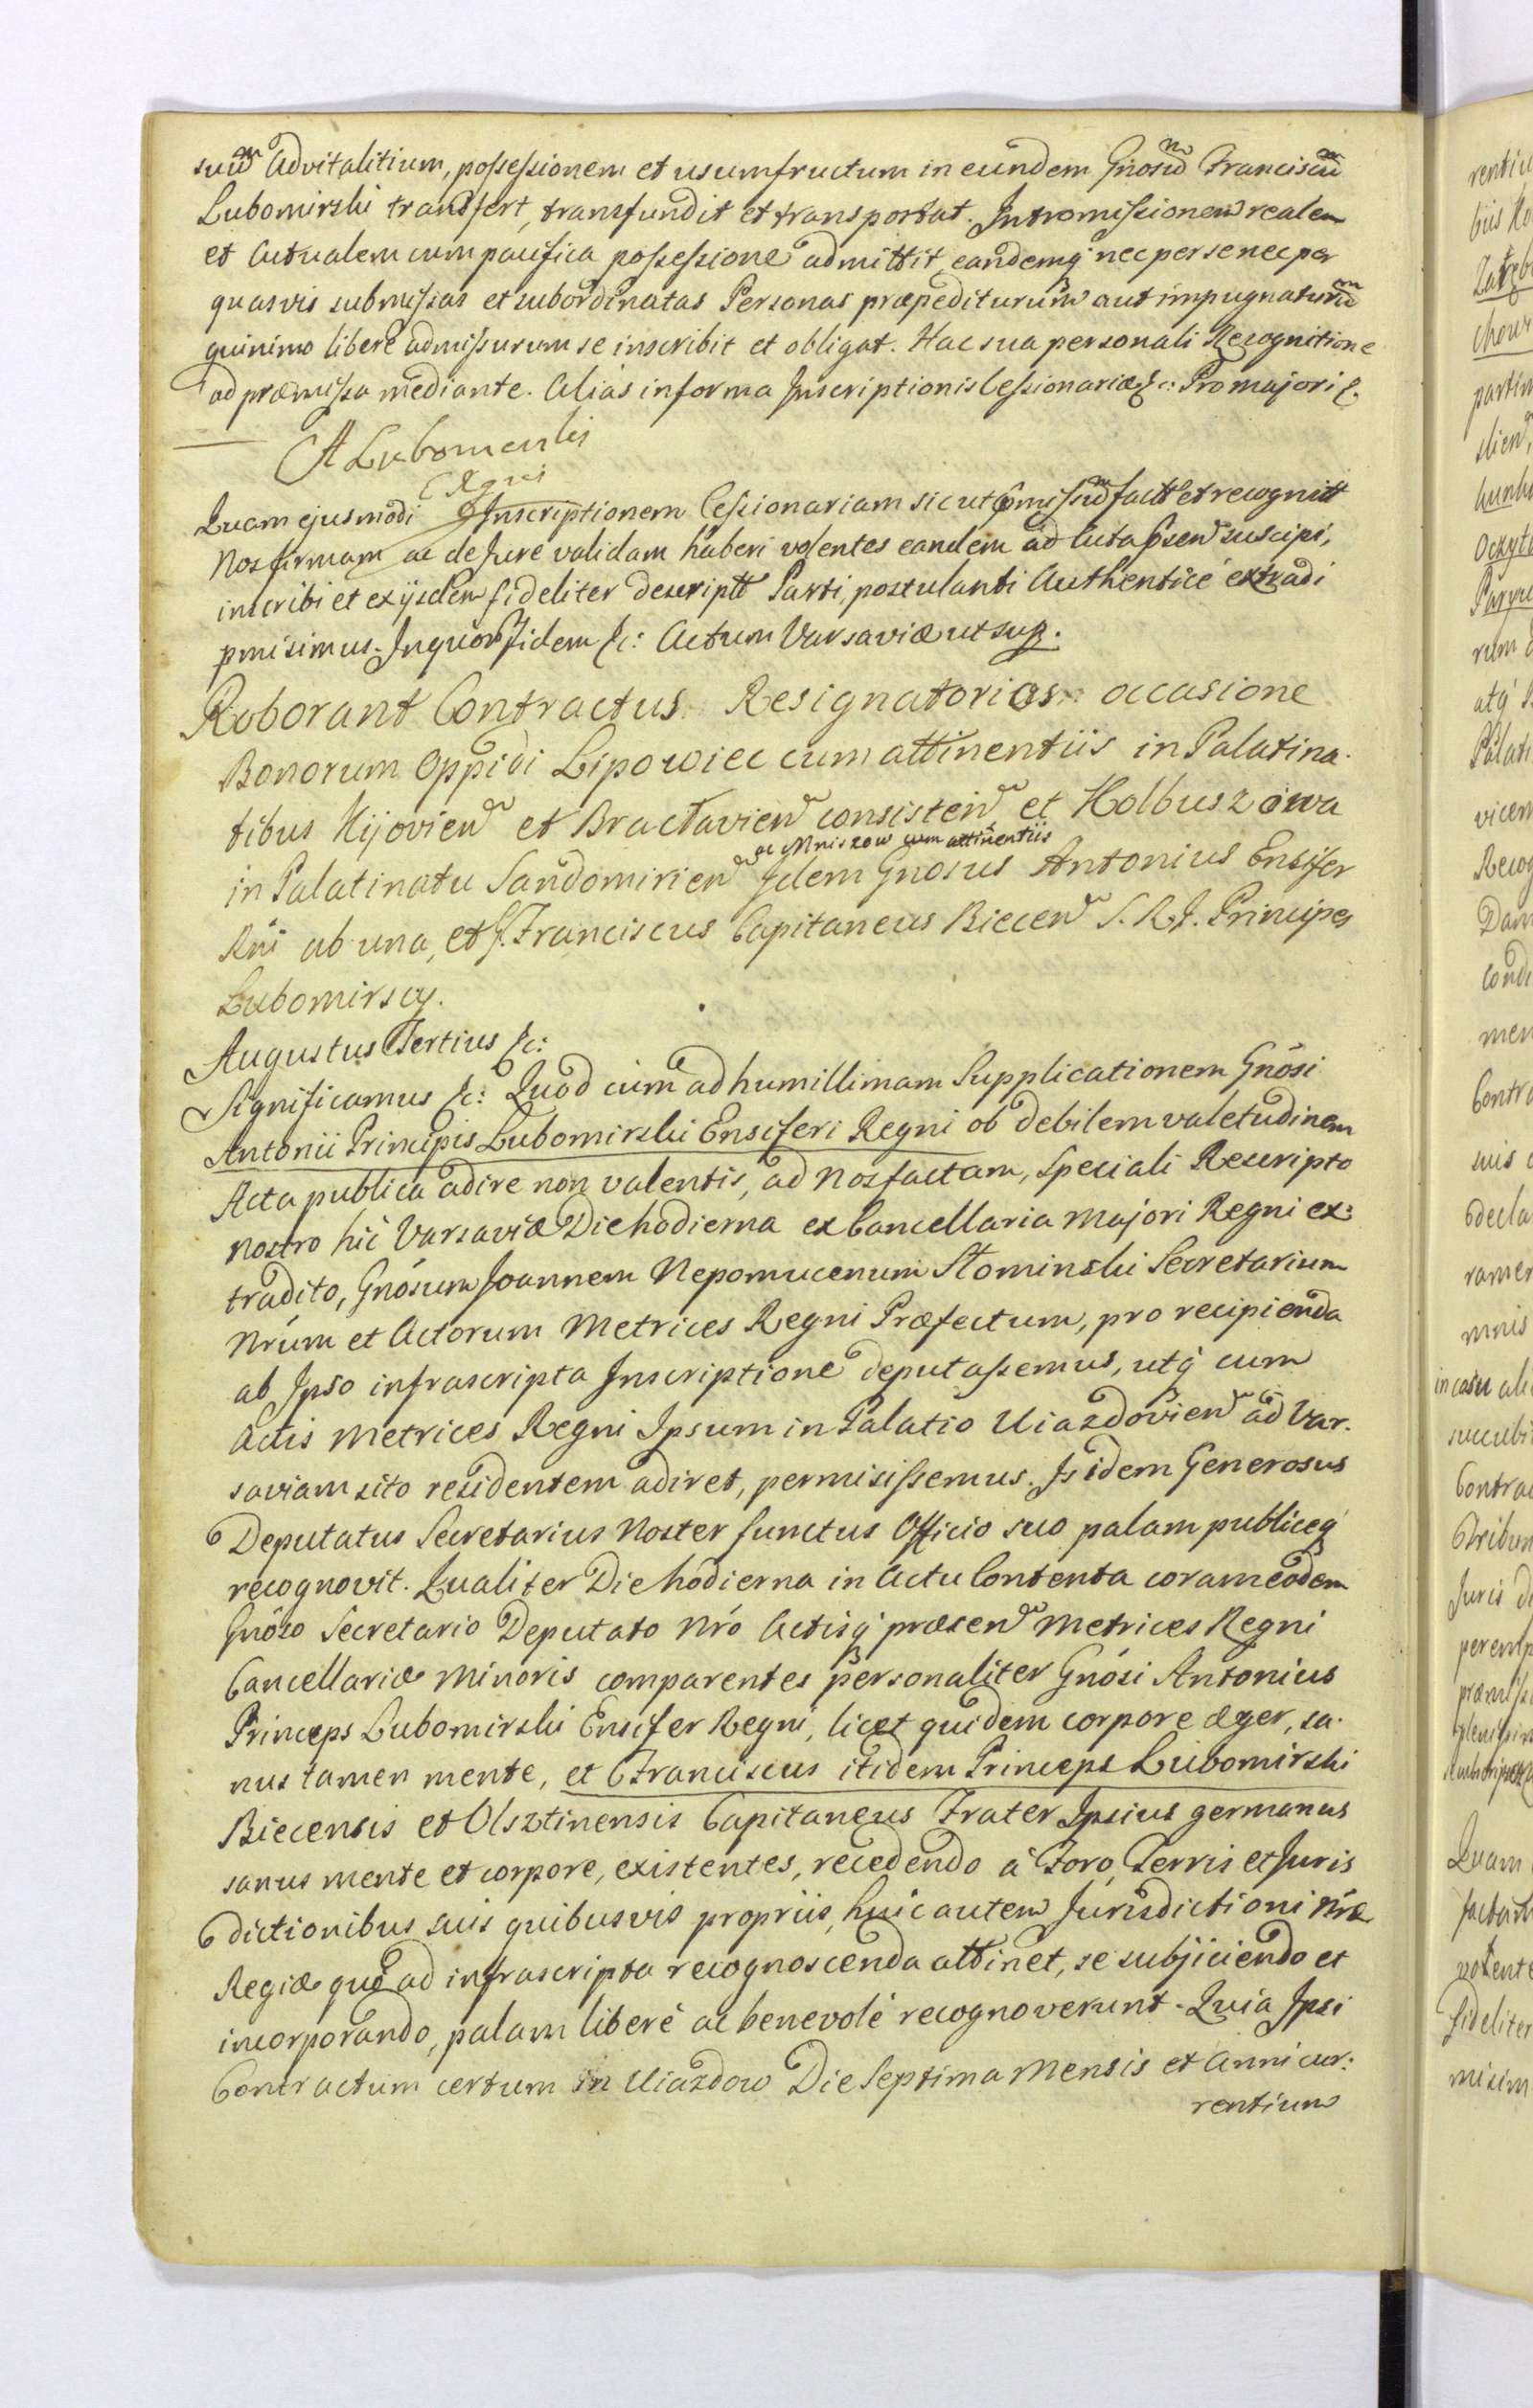 suū Advitalitium, possessionem et usumfructum in eundem Gnosū Franciscū
Lubomirski transfert, transfundit et transportat. Intromissionem realem
et Actualem cum pacifica possessione admittit, eandemq́ nec per se nec per
quasvis submissas et subordinatas Personas præpediturum aut impugnaturū
quinimo liberè admissurum se inscribit et obligat. Hac sua personali Recognitione
ad præmissa mediante. Aliàs in forma Inscriptionis Cessionariæ &c: Pro majori &.
A Lubomirski
Quam ejusmodi Inscriptionem Cessionariam sicut pmissū factt et recognitt
Nos firmam ac de Jure validam haberi volentes eandem ad Acta psen suscipi,
inscribi et ex ijsdem fideliter descriptt Parti postulanti Authenticè extradi
pmisimus. In quor fidem &c: Actum Varsaviæ ut sup.
Roborant Contractus Resignatorios occasione
Bonorum Oppidi Lipowiec cum attinentiis in Palatina-
tibus Kijovien et Bractavien consisten et Kolbuszowa
ac Mniszow cum attinentiis
in Palatinatu Sandomirien Idem Gnosus Antonius Ensifer
Rni ab una, et G. Franciscus Capitaneus Biecen S. R. I. Principes
Lubomirscy.
Augustus Tertius &c:
Significamus &c: Quod cùm ad humillimam Supplicationem Gnōsi
Antonii Principis Lubomirski Ensiferi Regni ob debilem valetudinem
Acta publica adire non valentis, ad Nos factam, Speciali Rescripto
nostro hìc Varsaviæ Die hodierna ex Cancellaria Majori Regni ex:
tradito, Gnōsum Joannem Nepomucenum Słominski Secretarium
Nrūm et Actorum Metrices Regni Præfectum, pro recipienda
ab Ipso infrascripta Inscriptione deputassemus, utq́ cum
Actis Metrices Regni Ipsum in Palatio Uiazdovien ad Var-
saviam sito residentem adiret, permisissemus. Is idem Generosus
Deputatus Secretarius Noster functus Officio suo palam publiceq́
recognovit. Qualiter Die hodierna in Actu Contenta coram eodem
Gnōso Secretario Deputato Nrō Actisq́ præsen Metrices Regni
Cancellariæ Minoris comparentes personaliter Gnōsi Antonius
Princeps Lubomirski Ensifer Regni, licet quidem corpore æger, sa-
nus tamen mente, et Franciscus itidem Princeps Lubomirski
Biecensis et Olsztinensis Capitaneus Frater Ipsius germanus
sanus mente et corpore, existentes, recedendo à Foro, Terris et Juris
dictionibus suis quibusvis propriis, huic autem Jurisdictioni Nrǣ
Regiæ quo ad infrascripta recognoscenda attinet, se subjiciendo et
incorporando, palam liberè ac benevolè recognoverunt. Quia Ipsi
Contractum certum in Uiazdow Die Septima Mensis et Anni cur:
rentium